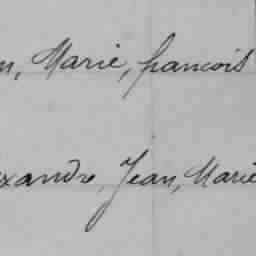 n, Marie, francois
xandre, Jean, Marie